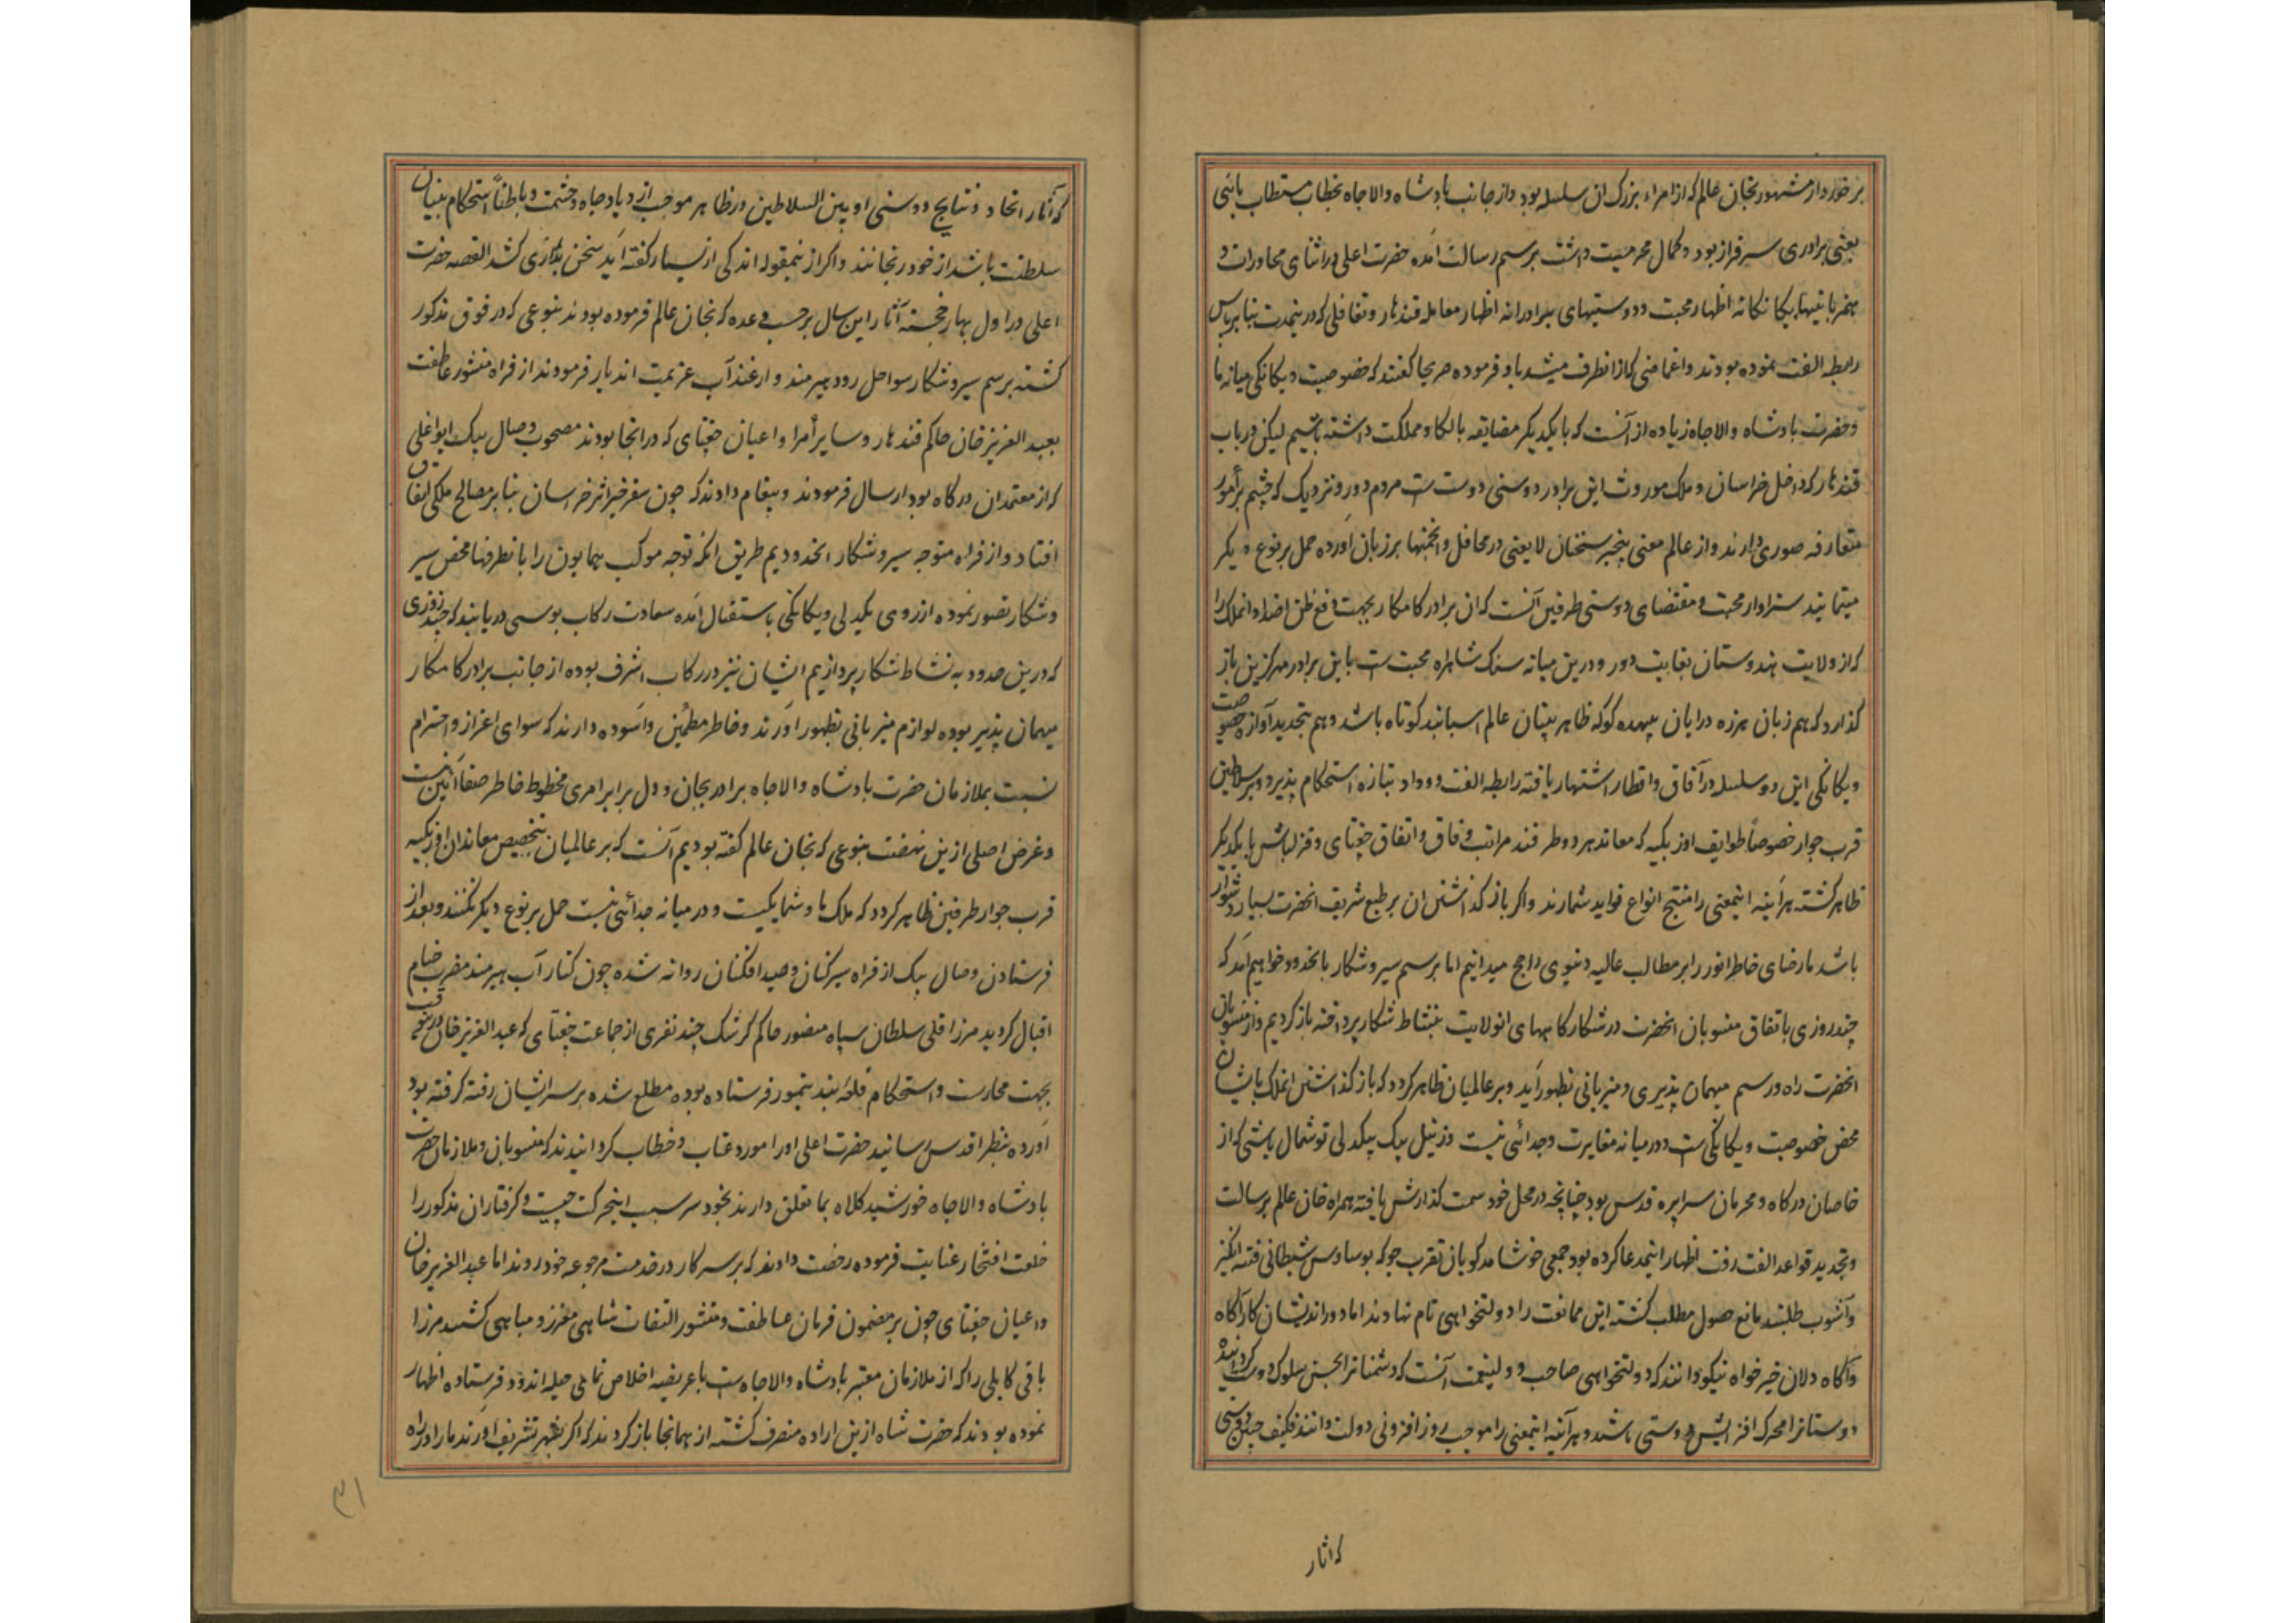 برخوردار مشهور بخان عالم که از امراء بزرک ان سلسله بود و از جانب پادشاه والاجاه بخطاب مستطاب بائی
یعنی برادری سرفراز بود و کمال محرمیت داشت برسم رسالت آمده حضرت اعلی در اثنای محاورات و
همزبانیها یکانکانه اظهار محبت و دوستیهای برادرانه اظهار معامله قندهار و تغافلی که درینمدت بنا بر پاس
رابطه الفت نموده بودند و اغماضی که از انطرف میشد یاد فرموده صریحا کفتند که خصوصیت و یکانکی میانه ما
و حضرت پادشاه والاجاه زیاده از آنست که با یکدیکر مضایقه بالکا و مملکت داشته باشیم لیکن در باب
قندهار که داخل خراسان و ملک موروث این برادر دوستی دوست است مردم دور و نزدیک که چشم بر امور
متعارفه صوری دارند و از عالم معنی بیخبر سخنان لایعنی در محافل و انجمنها بر زبان آورده حمل بر نوع دیکر
مینمایند سزاوار محبت و مقتضای دوستی طرفین آنست که ان برادر کامکار بجهت دفع ظن اضداد انملک را
که از ولایت هندوستان بغایت دور و درین میانه سنک شاهراه محبت است باین برادر مهرکزین باز
کذارد که هم زبان هرزه درایان بیهده کو که ظاهر بینان عالم اسبابند کوتاه باشد و هم بتجدید آوازه خصوصیت
و یکانکی این دو سلسله در آفاق و اقطار اشتهار یافته رابطه الفت و وداد بتازه استحکام پذیرد و بر سلاطین
قرب جوار خصوصاً طوایف اوزبکیه که معاند هر دو طرفند مراتب وفاق و اتفاق جغتای و قزلباش با یکدیکر
ظاهر کشته هرآینه اینمعنی را منتج انواع فواید شمارند و اکر باز کذاشتن ان بر طبع شریف انحضرت بسیار دشوار
باشد ما رضای خاطر انور را بر مطالب عالیه دنیوی راجح میدانیم اما برسم سیر و شکار بانحدود خواهیم آمد که
چند روزی باتفاق منسوبان انحضرت در شکارکاههای انولایت بنشاط شکار پرداخته باز کردیم و از منسوبان
انحضرت راه و رسم میهمان پذیری و میزبانی بظهور آید و بر عالمیان ظاهر کردد که باز کذاشتن انملک بایشان
محض خصوصیت و یکانکی است و در میانه مغایرت و جدائی نیست و زنیل بیک بیکدلی توشمال باشی که از
خاصان درکاه و محرمان سراپره قدس بود چنانچه در محل خود سمت کذارش یافته همراه خان عالم برسالت
و تجدید قواعد الفت رفت اظهار اینمدعا کرده بود جمعی خوشامدکویان تقرب جو که بوساوس شیطانی فتنه انکیز
و آشوب طلبند مانع حصول مطلب کشته این ممانعت را دولتخواهی نام نهادند اما دوراندیشان کارآکاه
و آکاه دلان خیرخواه نیکو دانند که دولتخواهی صاحب و ولینعمت آنست که دشمنانرا بحسن سلوک دوست کردانیده
دوستانرا محرک افزایش دوستی باشند و هرآینه اینمعنی را موجب روزافزونی دولت دانند فکیف چنین دوستی
که اثار
که آثار اتحاد و نتایج دوستی او بین السلاطین در ظاهر موجب ازدیاد جاه و حشمت و باطناً استحکام بنیان
سلطنت باشد از خود رنجانند و اکر ازینمقوله اندکی از بسیار کفته آید سخن بدرازی کشد القصه حضرت
اعلی در اول بهار خجسته آثار این سال برحسب وعده که بخان عالم فرموده بودند بنوعی که در فوق مذکور
کشته برسم سیر و شکار سواحل رود هیرمند و ارغنداب عزیمت اندیار فرمودند از فراه منشور عاطفت
بعبدالعزیز خان حاکم قندهار و سایر امرا و اعیان جغتای که در انجا بودند مصحوب وصال بیک ایواغلی
که از معتمدان درکاه بود ارسال فرمودند و پیغام دادند که چون سفر خیر اثر خراسان بنا بر مصالح ملکی اتفاق
افتاد و از فراه متوجه سیر و شکار انحدودیم طریق انکه توجه موکب همایون را بانطرفها محض سیر
و شکار تصور نموده از روی یکدلی و یکانکی باستقبال آمده سعادت رکاب بوسی دریابند که چند روزی
که درین حدود به نشاط شکار پردازیم ایشان نیز در رکاب اشرف بوده از جانب برادر کامکار
میهمان پذیر بوده لوازم میزبانی بظهور آورند و خاطر مطمئن و آسوده دارند که سوای اعزاز و احترام
نسبت بملازمان حضرت پادشاه والاجاه برادر بجان و دل برابر امری مخطوط خاطر صفا آئین نیست
و غرض اصلی ازین نهضت بنوعی که بخان عالم کفته بودیم آنست که بر عالمیان بتخصیص معاندان اوزبکیه
قرب جوار طرفین ظاهر کردد که ملک ما و شما یکیست و در میانه جدائی نیست حمل بر نوع دیکر نکنند و بعد از
فرستادن وصال بیک از فراه سیرکنان و صید افکنان روانه شده چون کنار آب هیرمند مضرب خیام
اقبال کردید مرزا قلی سلطان سیاه منصور حاکم کرشک چند نفری از جماعت جغتای که عبدالعزیز خان درینوقت
بجهت محارست و استحکام قلعه بند تیمور فرستاده بوده مطلع شده بر سر ایشان رفته کرفته بود
آورده بنظر اقدس رسانید حضرت اعلی او را مورد عتاب و خطاب کردانیدند که منسوبان و ملازمان حضرت
پادشاه والاجاه خورشید کلاه بما تعلق دارند بخود سر سبب اینحرکت چیست و کرفتاران مذکور را
خلعت افتخار عنایت فرموده رخصت دادند که بر سر کار در خدمت مرجوعه خود روند اما عبدالعزیز خان
و اعیان جغتای چون بر مضمون فرمان عاطفت و منشور التفات شاهی معزز و مباهی کشتند مرزا
باقی کابلی را که از ملازمان معتبر پادشاه والاجاه است با عریضه اخلاص نمای حیله اندود فرستاده اظهار
نموده بودند که حضرت شاه ازین اراده منصرف کشته از همانجا باز کردند که اکر بشهر تشریف آورند ما را در راه
۳۱